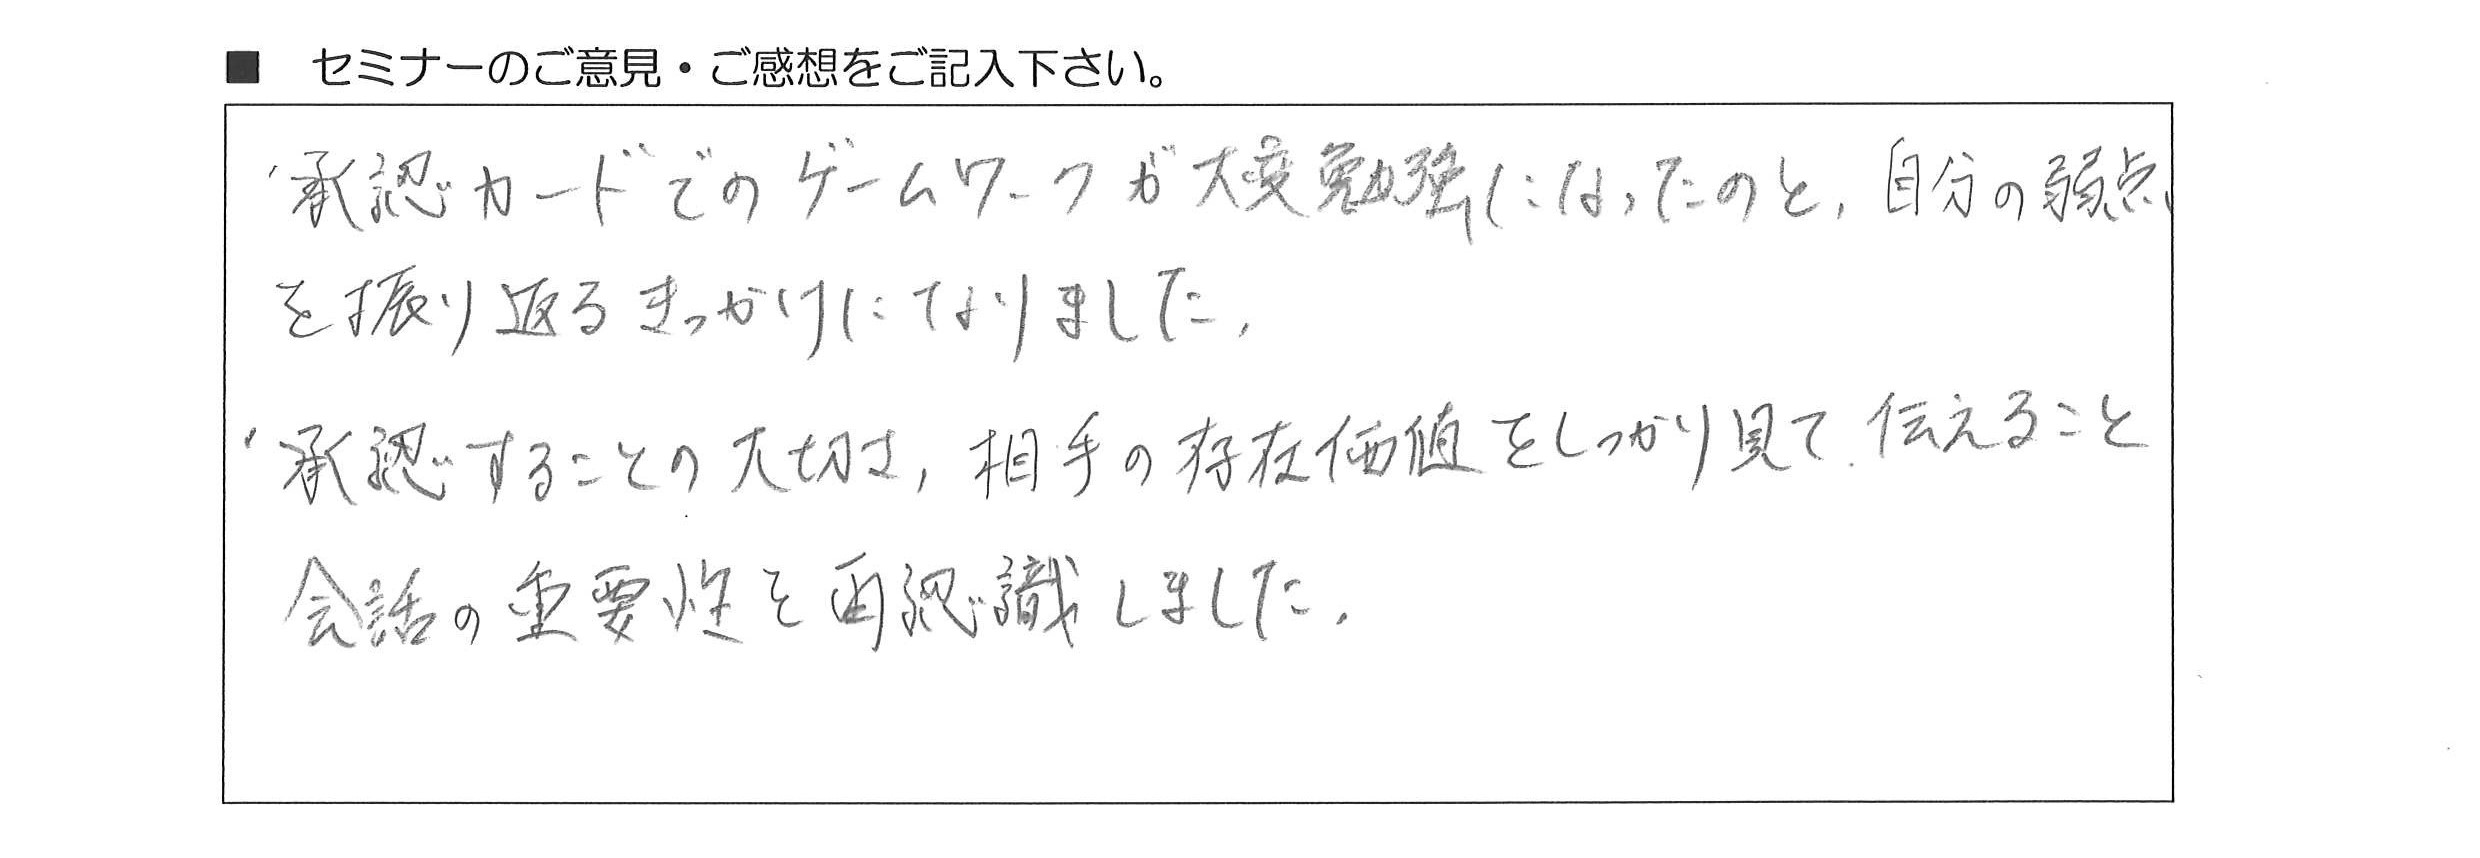 ■ セミナーのご意見・ご感想をご記入下さい。
・承認カードでのゲームワークが大変勉強になったのと、自分の弱点
を振り返るきっかけになりました。
・承認することの大切さ、相手の存在価値をしっかり見て、伝えること
会話の重要性を再認識しました。